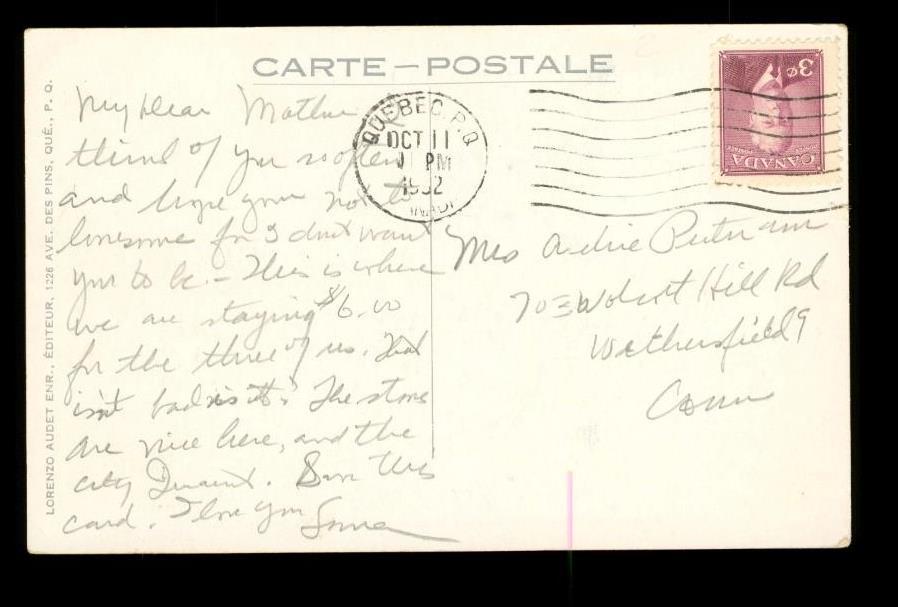 CARTE—POSTALE
LORENZO AUDET ENR., ÉDITEUR, 1226 AVE. DES PINS, QUÉ., P. Q.
QUEBEC, P.Q.
OCT 11
PM
1952
3¢
CANADA
My Dear Mother
think of you so often
and hope your not to
lonesome for I don't want
you to be. – This is where
we are staying $6.00
for the three of us. That
isn't bad is it? The stores
are nice here, and the
city Quaint. Save this
card. I love you
Mrs Putnam
703 Wolcott Hill Rd
Wethersfield 9
Conn